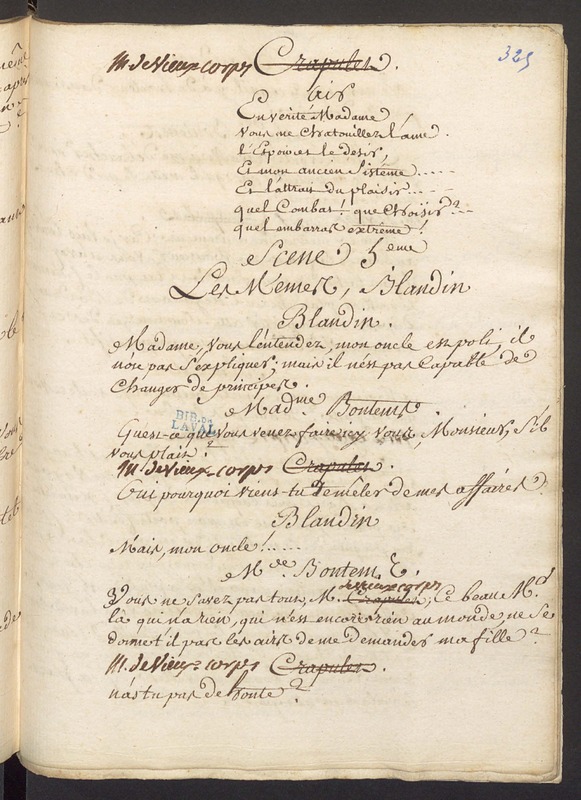 325
M. de Vieux-corps Crapules.
air
En verité Madame
vous me chatouillez l'ame.
l'Espoir et le desir,
Et mon ancien sistême.....
Et l'attrait du plaisir....
quel Combat! que choisir?..
quel embarras extrême!
Scene 5.eme
Les Memes, Blandin
Blandin.
Madame, vous l'entendez, mon oncle est poli, il
n'ose pas s'expliquer; mais il n'est pas Capable de
changer de principes.
Mad.me Bontems.
BIB. DE
LAVAL
Quest-ce que vous venez faire icy vous, Monsieur, s'il
vous plait?
M. de Vieux-corps Crapules.
Oui pourquoi viens-tu te mêler de mes affaires.
Blandin
Mais, mon oncle!.....
M.de Bontems.
de vieux corps
Vous ne savez pas tout, M. Crapules; Ce beau M.r
là qui n'a rien, qui n'est encore rien au monde, ne se
donnet il pas les airs de me demander ma fille?
M. de Vieux-corps Crapules.
n'as tu pas de honte?